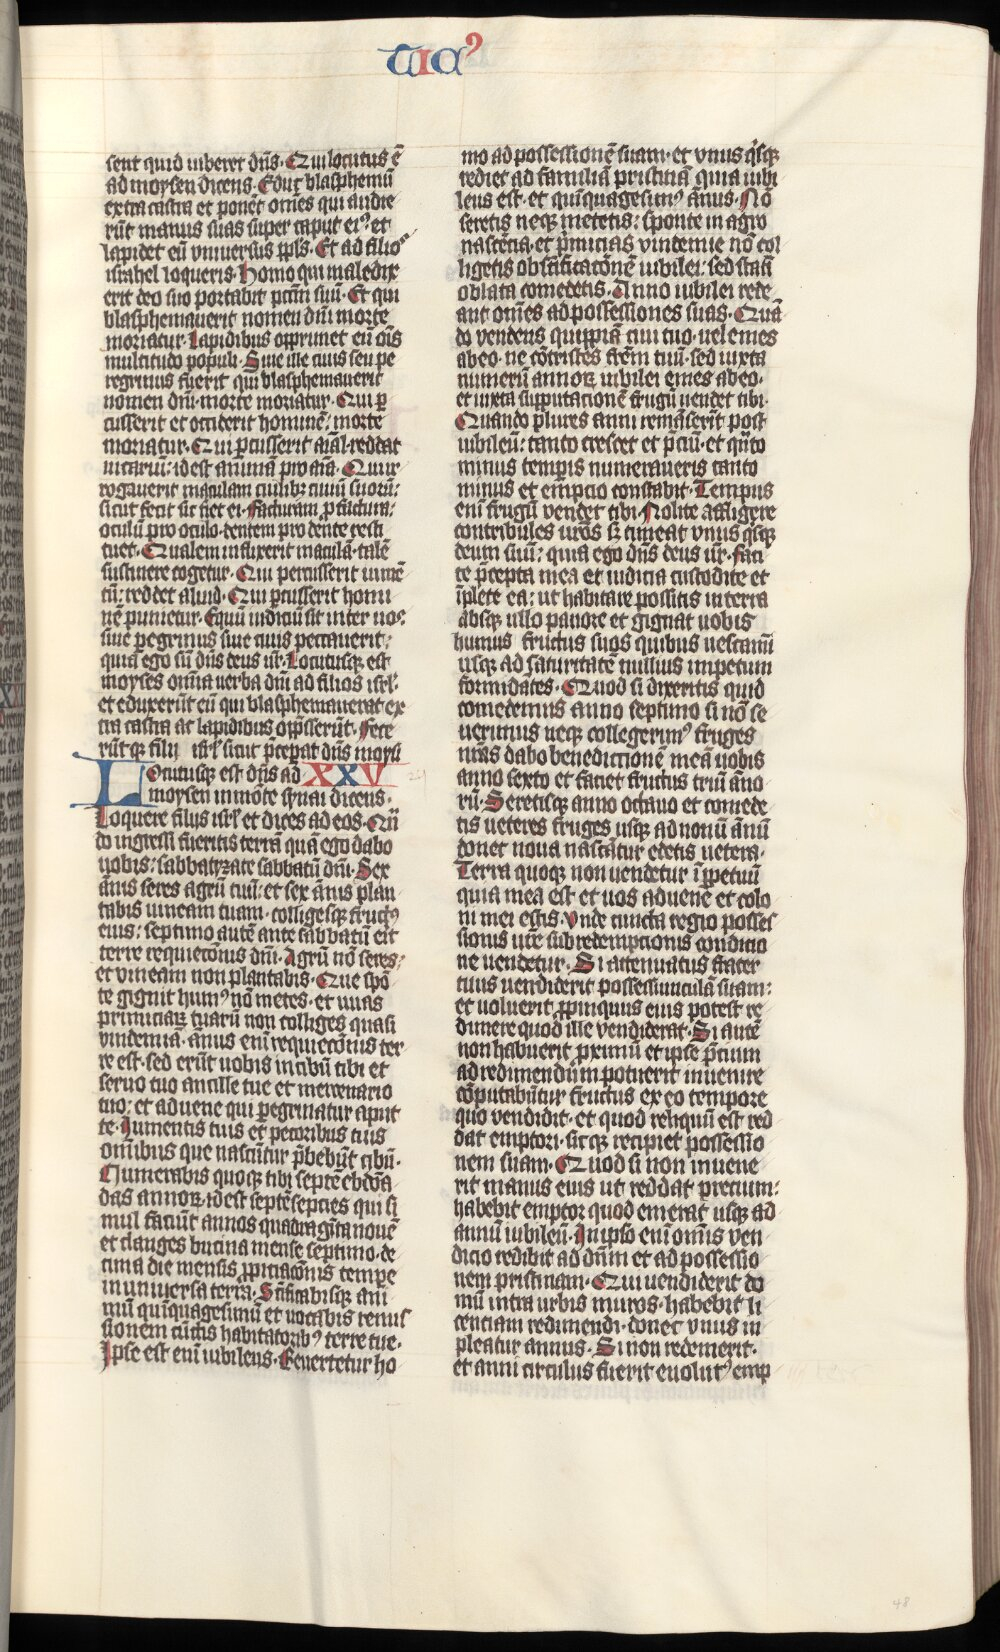 tic9
sent quid iuberet dñs. Qui locutus ē
ad moysen dicens. Educ blasphemū
extra castra et ponēt om̄es qui audie
rūt manus suas super caput ei9: et
lapidet eū vniuersus ppl̄s. Et ad filios
israhel loqueris. Homo qui maledix
erit deo suo portabit pctm̄ suū. Et qui
blasphemauerit nomen dn̄i morte
moriatur. Lapidibus opprimet eū oīs
multitudo populi. Siue ille ciuis seu pe
regrinus fuerit qui blasphemauerit
nomen dn̄i. morte moriatur. Qui p̱
cusserit et occiderit hominē: morte
moriatur. Qui p̱cusserit aīal. reddat
uicariū: id est animā pro aīa. Qui ir
rogauerit maculam ciuilibꝫ ciuiū suorū:
sicut fecit sic fiet ei. Facturam ꝓ factura:
oculū pro oculo. dentem pro dente resti
tuet. Qualem inflixerit maculā. talē
sustinere cogetur. Qui percusserit iumē
tū: reddet aliud. Qui p̱cusserit homi
nē punietur. Equū iudiciū sit inter uos:
siue p̱egrinus siue ciuis peccauerit:
quia ego sū dn̄s deus ur̄. Locutusqꝫ est
moyses omīa uerba dn̄i ad filios isrl̄.
et eduxerūt eū qui blasphemauerat ex
tra castra ac lapidibus opp̄sserūt. Fece
rūtqꝫ filij isrl̄ sicut p̄cepat dn̄s moysi
Locutusqꝫ est dn̄s ad XXV
moysen in mōte synai dicens.
Loquere filijs isrl̄ et dices ad eos. Qn̄
do ingressi fueritis terrā quā ego dabo
uobis: sabbatizate sabbatū dn̄i. Sex
ānis seres agrū tuū: et sex ānis plan
tabis uineam tuam. colligesqꝫ fruct9
eius: septimo autē anno sabbatū erit
terre requietōnis dn̄i. Agrū nō seres:
et vineam non plantabis. Que spō
te gignit hum9 nō metes. et uuas
primiciaꝝ tuarū non colliges quasi
vindemiā. annus enī requietōnis ter
re est. sed erūt uobis in cibū tibi et
seruo tuo ancille tue et mercenario
tuo: et aduene qui p̱egrinatur aput
te. Iumentis tuis et pecoribus tuis
om̄ibus que nascūtur p̄bebūt cibū.
Numerabis quoqꝫ tibi septē ebdōa
das annoꝝ. id est septē septies qui si
mul faciūt annos quadragīta nouē
et clanges bucina mense septimo. de
cima die mensis ꝓpitiatōnis tempe
in uniuersa terra. Sc̄ificabisqꝫ anī
mū quīquagesimū et vocabis remis
sionem cūctis habitatorib9 terre tue.
Ipse est enī iubileus. Reuertetur ho
mo ad possessionē suam. et vnus qꝫsqꝫ
rediet ad familiā pristinā quia iubi
leus est. et quīquagesim9 ānus. Nō
seretis neqꝫ metetis: sponte in agro
nascētia. et p̄micias vindemie nō col
ligetis ob sc̄ificatōnē iubilei: sed stati
oblata comedetis. Anno iubilei rede
ant om̄es ad possessiones suas. Quā
do vendens quippiā ciui tuo. uel emes
ab eo. ne cōtristes fr̄em tuū. sed iuxta
numerū annoꝝ iubilei emes ab eo.
et iuxta supputacionē frugū uendet tibi.
Quando plures anni remāserīt post
iubileū: tanto crescet et p̄ciū. et qn̄to
minus tempis numeraueris tanto
minus et emp̄cio constabit. Tempus
enī frugū vendet tibi. Nolite affligere
contribules uros sꝫ timeat vnus qꝫsqꝫ
deum suū: quia ego dn̄s deus ur̄. Faci
te p̄cepta mea et iudicia custodite et
īplete ea: ut habitare possitis in terra
absqꝫ ullo pauore et gignat uobis
humus fructus suos quibus uescamī
usqꝫ ad saturitatē nullius impetum
formidātes. Quod si dixeritis quid
comedemus anno septimo si nō se
uerimus neqꝫ collegerim9 fruges
nr̄as dabo benedictionē meā uobis
anno sexto et faciet fructus triū āno
rū. Seretisqꝫ anno octauo et comede
tis ueteres fruges usqꝫ ad nonū ānū
donec noua nascātur edetis uetera.
Terra quoqꝫ non uendetur ī ꝑpetuū
quia mea est et uos aduene et colo
ni mei estis. Vnde cuncta regio posses
sionis ur̄e sub redemptionis condicio
ne uendetur. Si attenuatus frater
tuus uendiderit possessiunculā suam:
et uoluerit ꝓpinquus eius potest re
dimere quod ille vendiderat. Si autē
non habuerit proximū et ipse p̄cium
ad redimendum potuerit inuenire
cōputabūtur fructus ex eo tempore
quo vendidit. et quod reliquū est red
dat emptori. sicqꝫ recipiet possessio
nem suam. Quod si non inuene
rit manus eius ut reddat precium:
habebit emptor quod emerat usqꝫ ad
annū iubileū. In ipso enī om̄is ven
dicio redibit ad dn̄m et ad possessio
nem pristinam. Qui uendiderit do
mū intra urbis muros. habebit li
centiam redimendi. donec vnus in
pleatur annus. Si non redemerit.
et anni circulus fuerit euolut9 emp
48